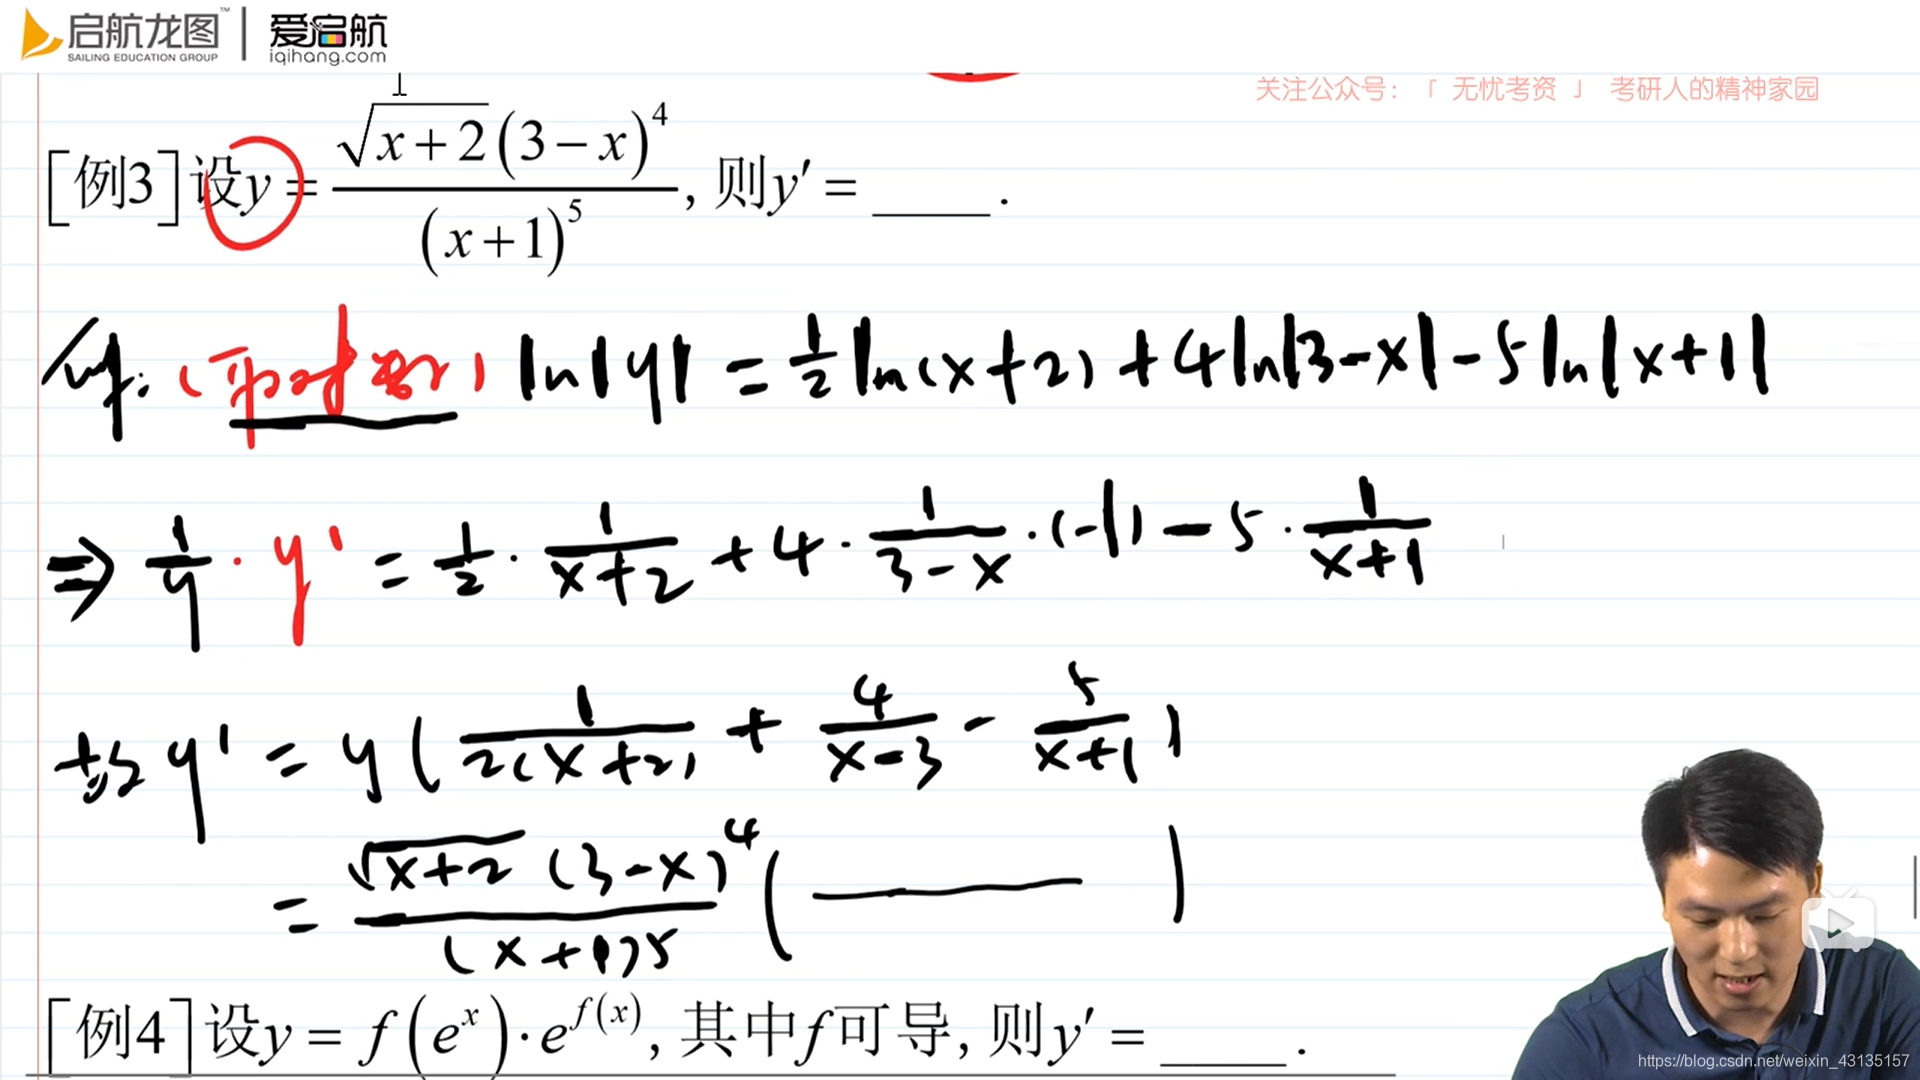 启航龙图™ 爱启航
SAILING EDUCATION GROUP iqihang.com
关注公众号:「 无忧考资 」 考研人的精神家园
[例3]设y = √(x+2)(3−x)⁴ / (x+1)⁵, 则y′ = ____.
解:(取对数) ln|y| = ½ ln(x+2) + 4ln|3-x| - 5ln|x+1|
⇒ 1/y · y' = ½ · 1/(x+2) + 4 · 1/(3-x) · (-1) - 5 · 1/(x+1)
故 y' = y ( 1/2(x+2) + 4/(x-3) - 5/(x+1) )
= √(x+2) (3-x)⁴ / (x+1)5 ( —— )
[例4]设y = f(eˣ)·e^f(x), 其中f可导, 则y′ = ____.
https://blog.csdn.net/weixin_43135157